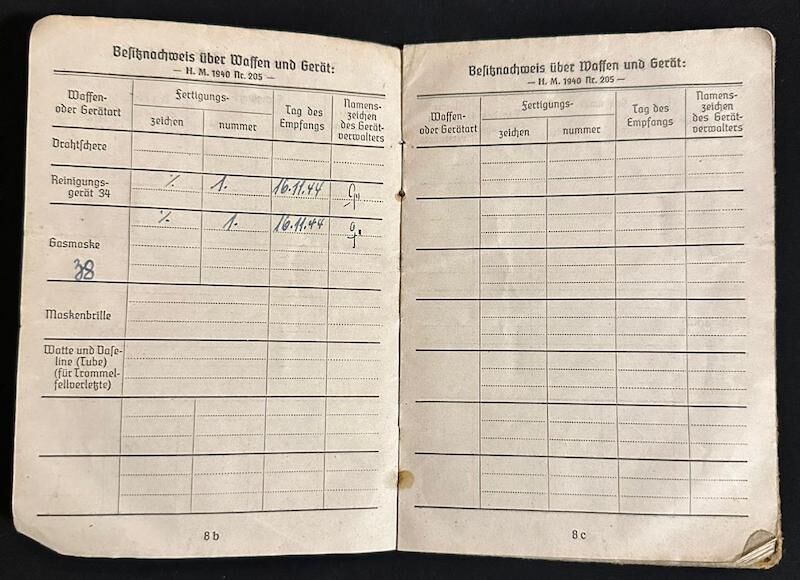 Besitznachweis über Waffen und Gerät:
— H. M. 1940 Nr. 205 —
Waffen-
oder Gerätart
Fertigungs-
zeichen
nummer
Tag des
Empfangs
Namens-
zeichen
des Gerät-
verwalters
Drahtschere
Reinigungs-
gerät 34
% 1. 16.11.44
% 1. 16.11.44
Gasmaske
38
Maskenbrille
Watte und Vase-
line (Tube)
(für Trommel-
fellverletzte)
8 b
Besitznachweis über Waffen und Gerät:
— H. M. 1940 Nr. 205 —
Waffen-
oder Gerätart
Fertigungs-
zeichen
nummer
Tag des
Empfangs
Namens-
zeichen
des Gerät-
verwalters
8 c